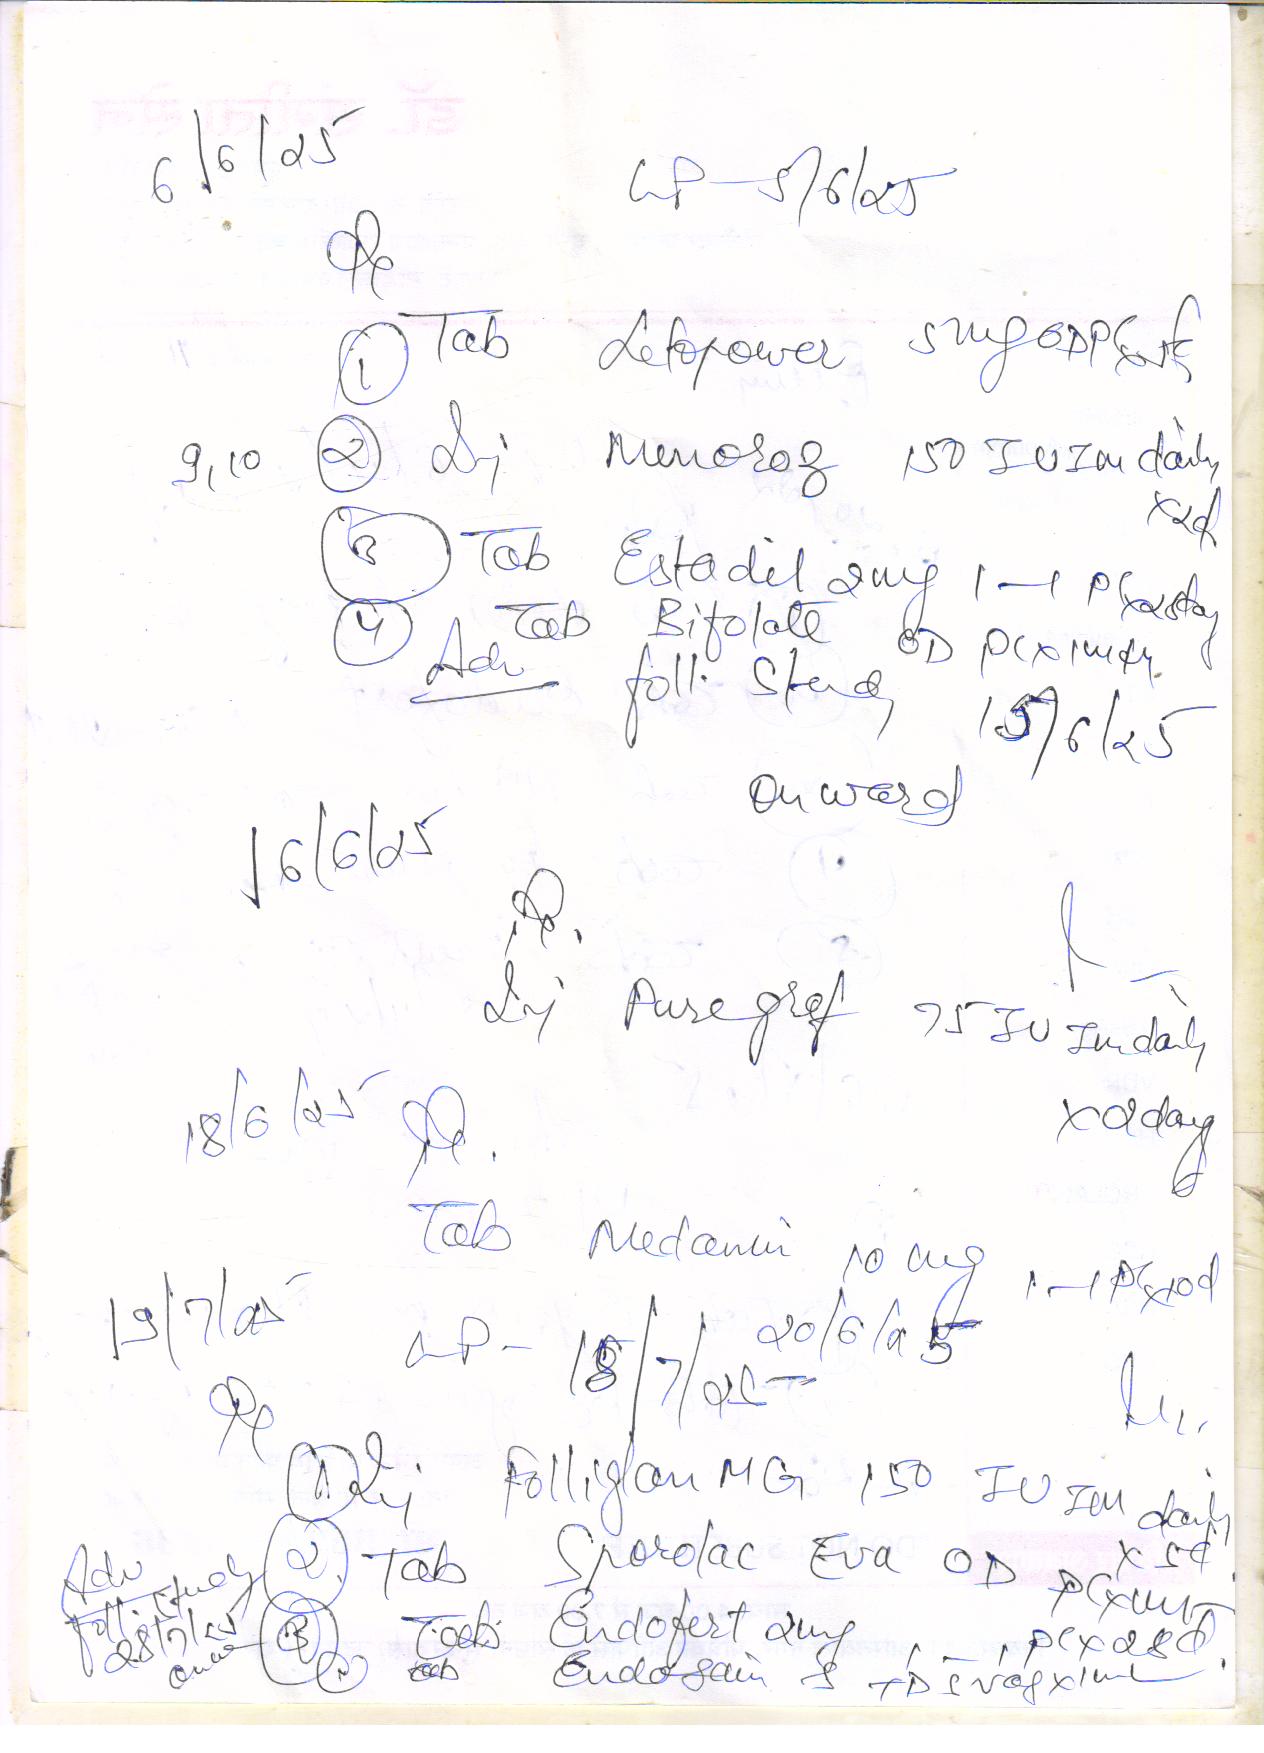 6/6/25
LMP - 5/6/25
Rx
① Tab Letopower 5mg OD PC x 5d
9,10 ② Inj Menorag 150 IU IM daily x2d
③ Tab Estadil 2mg 1-1 PC x 28day
④ Tab Bifolate OD PC x 1mth
Adv foll. study 15/6/25
onward
16/6/25
Rx.
Inj Puregraf 75 IU IM daily
x 2day
18/6/25 Rx.
Tab Medamin 10 mg 1-1 PC x 10d
20/6/25
19/7/25 LMP - 18/7/25
Rx
① Inj Folliglan MG 150 IU IM daily
x 5d
② Tab Sporolac Eva OD PC x 1mth
Adv
foll. study
28/7/25
onward
③ Tab Endofert 2mg 1-1 PC x 28d
Tab Endogain S TDS vag x 1m